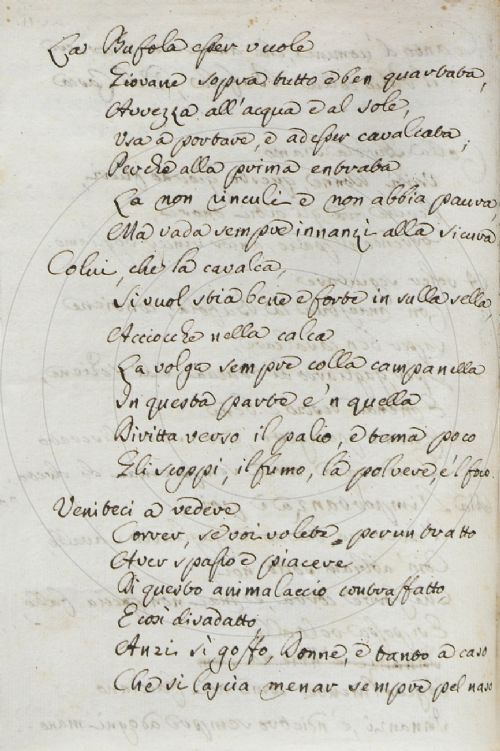 La Bufola esser vuole
Giovane sopra tutto e ben quartata,
Avvezza all'acqua e al sole,
Usa a portare, e ad esser cavalcata,
Perche alla prima entrata
La non rinculi e non abbia paura
Ma vada sempre innanzi alla sicura
Colui, che la cavalca,
Si vuol stia bene e forte in sulla sella,
Acciocche nella calca
La volga sempre colla campanella
In questa parte e'n quella
Diritta verso il palio, e tema poco
Gli scoppi, il fumo, la polvere, e'l foco.
Veniteci a vedere
Correr, se voi volete, per un tratto
Aver spasso e piacere
Di questo animalaccio contraffatto
E così disadatto
Anzi sì goffo, Donne, e tanto a caso
Che si lascia menar sempre pel naso